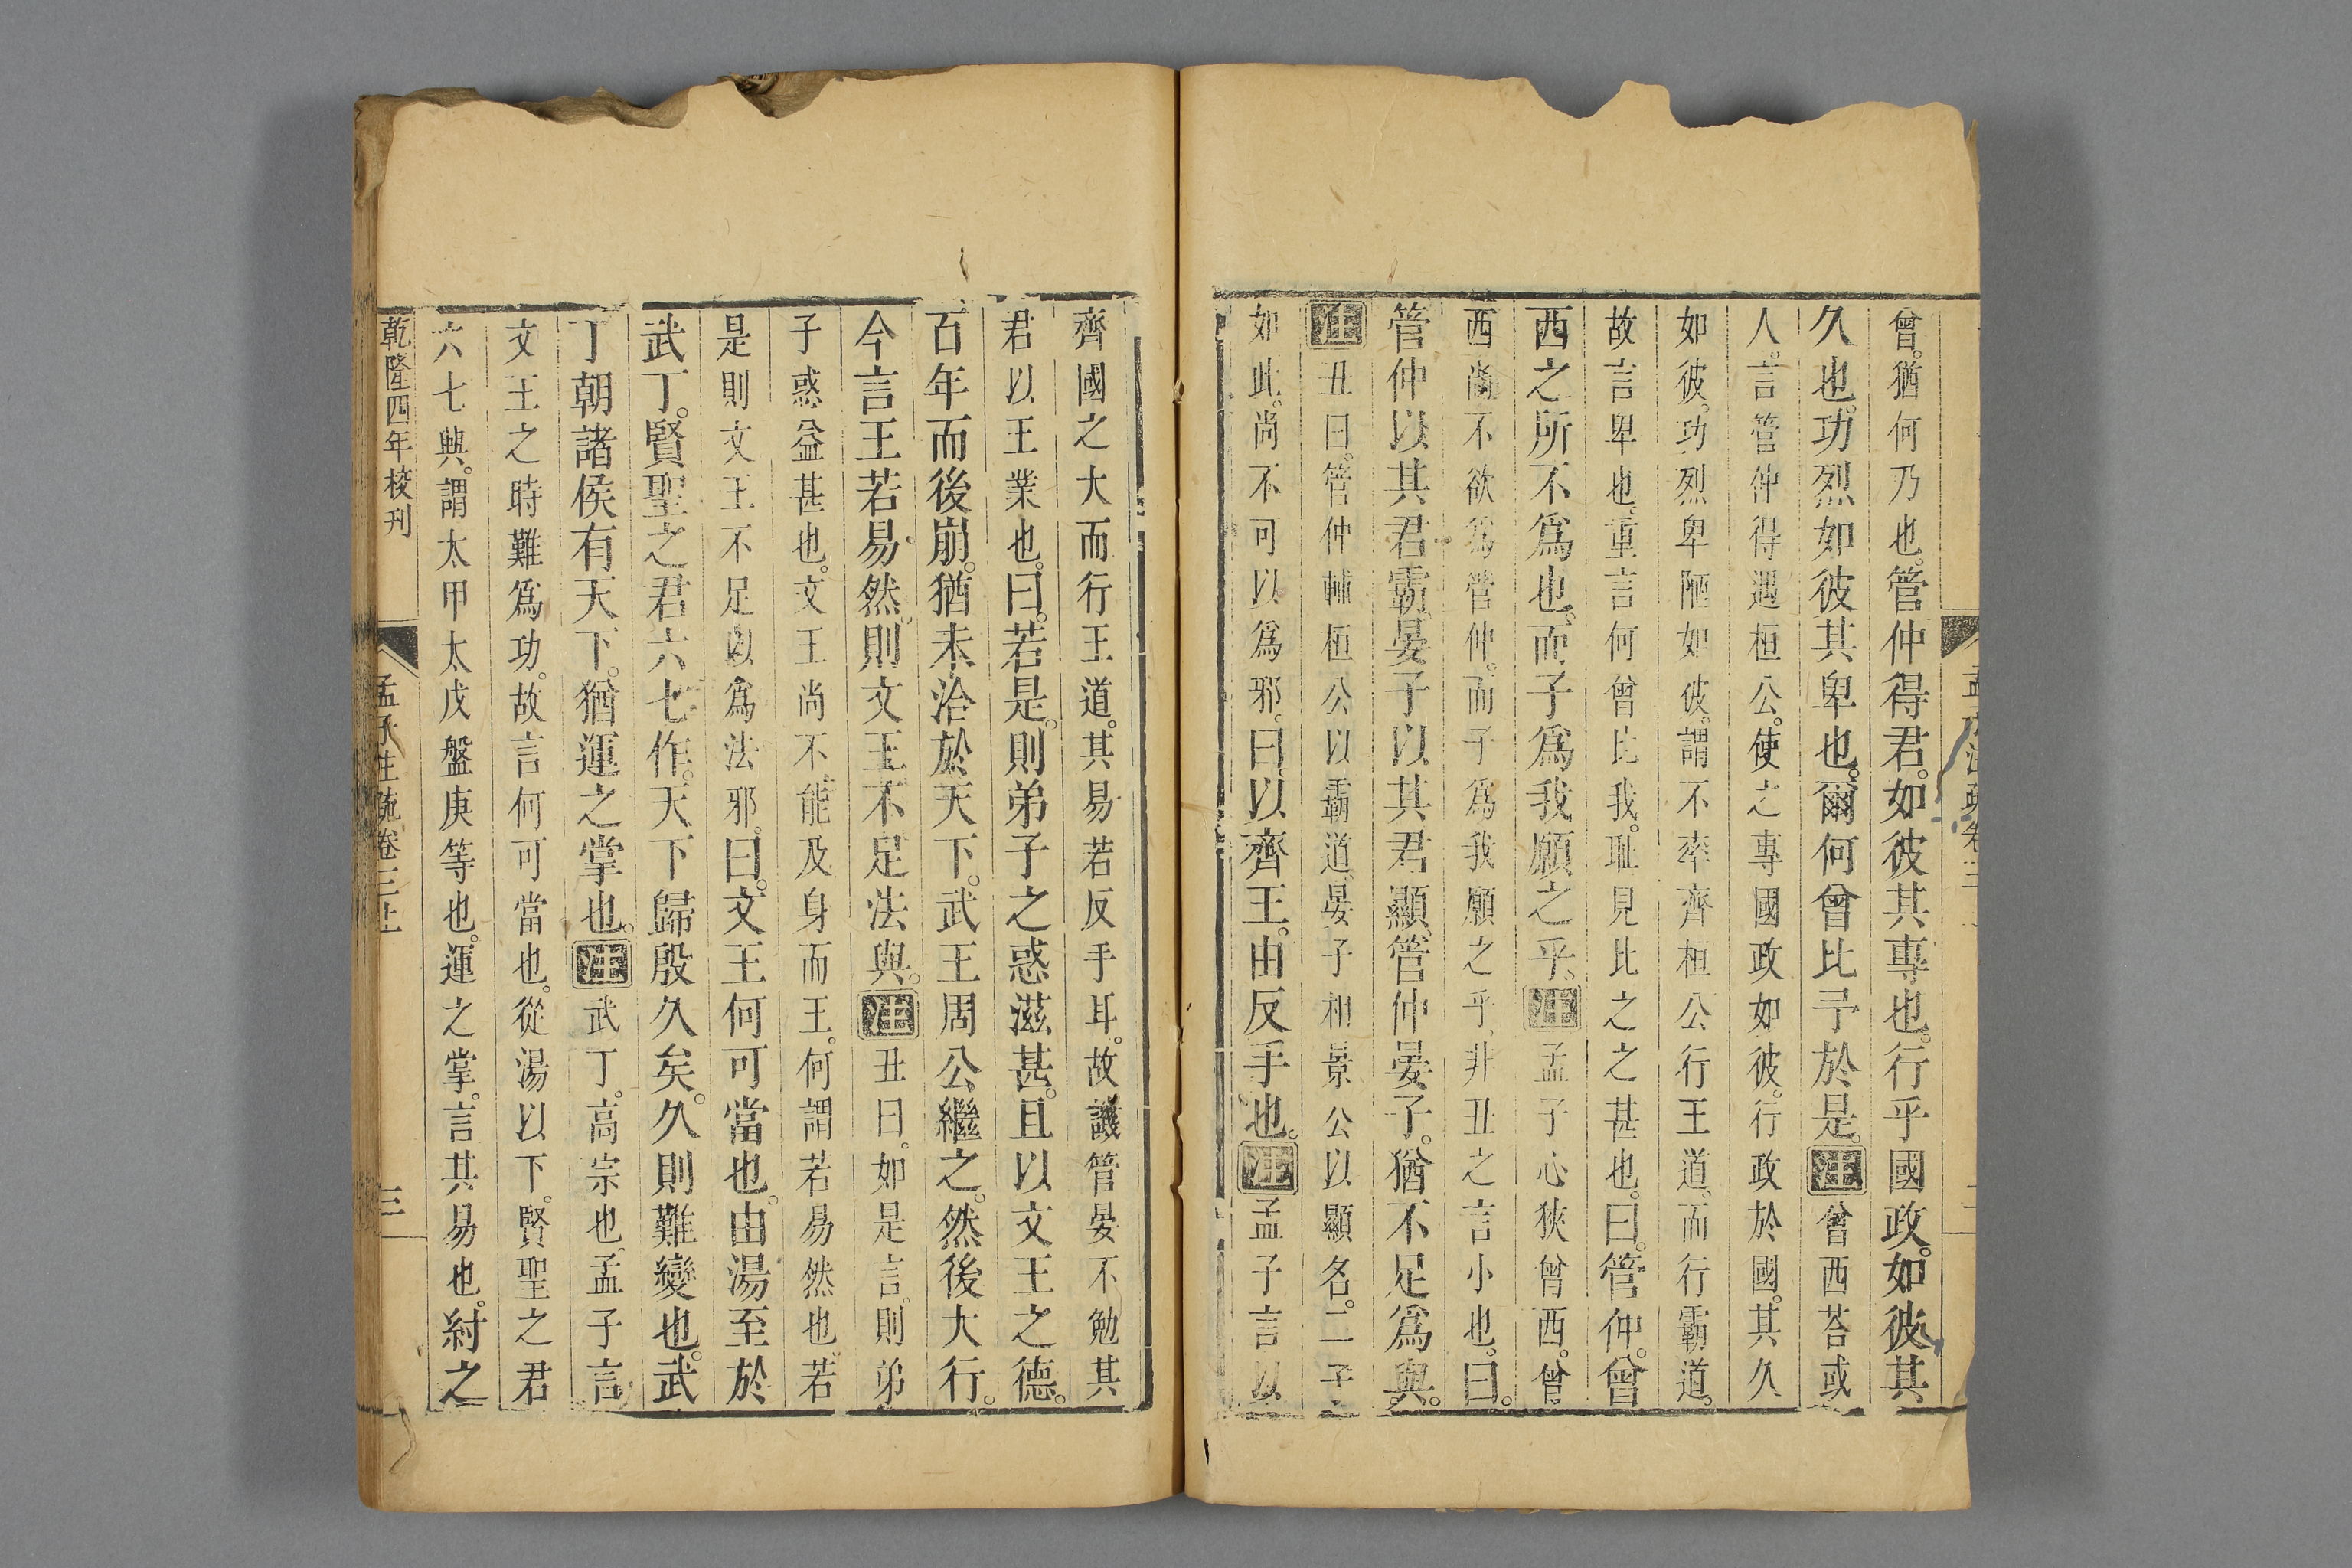 孟子注疏卷三上
二
曾。猶何乃也。管仲得君。如彼其專也。行乎國政。如彼其
久也。功烈如彼其卑也。爾何曾比予於是。注曾西荅或
人。言管仲得遇桓公。使之專國政如彼。行政於國。其久
如彼。功烈卑陋如彼。謂不率齊桓公行王道。而行霸道。
故言卑也。重言何曾比我。恥見比之之甚也。曰。管仲。曾
西之所不爲也。而子爲我願之乎。注孟子心狹曾西。曾
西尚不欲爲管仲。而子爲我願之乎。非丑之言小也。曰。
管仲以其君霸。晏子以其君顯。管仲晏子。猶不足爲與。
注丑曰。管仲輔桓公以霸道。晏子相景公以顯名。二子
如此。尚不可以爲邪。曰。以齊王。由反手也。注孟子言以
齊國之大而行王道。其易若反手耳。故譏管晏不勉其
君以王業也。曰。若是。則弟子之惑滋甚。且以文王之德。
百年而後崩。猶未洽於天下。武王周公繼之。然後大行。
今言王若易然。則文王不足法與。注丑曰。如是言。則弟
子惑益甚也。文王尚不能及身而王。何謂若易然也。若
是則文王不足以爲法邪。曰。文王何可當也。由湯至於
武丁。賢聖之君六七作。天下歸殷久矣。久則難變也。武
丁朝諸侯有天下。猶運之掌也。注武丁。高宗也。孟子言
文王之時難爲功。故言何可當也。從湯以下。賢聖之君
六七興。謂太甲太戊盤庚等也。運之掌。言其易也。紂之
乾隆四年校刊
孟子注疏卷三上
三